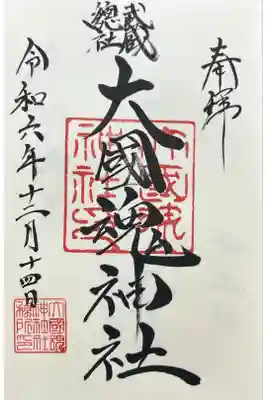 奉拝
武蔵
總社
大國魂神社
令和六年十二月十四日
大國魂神社印